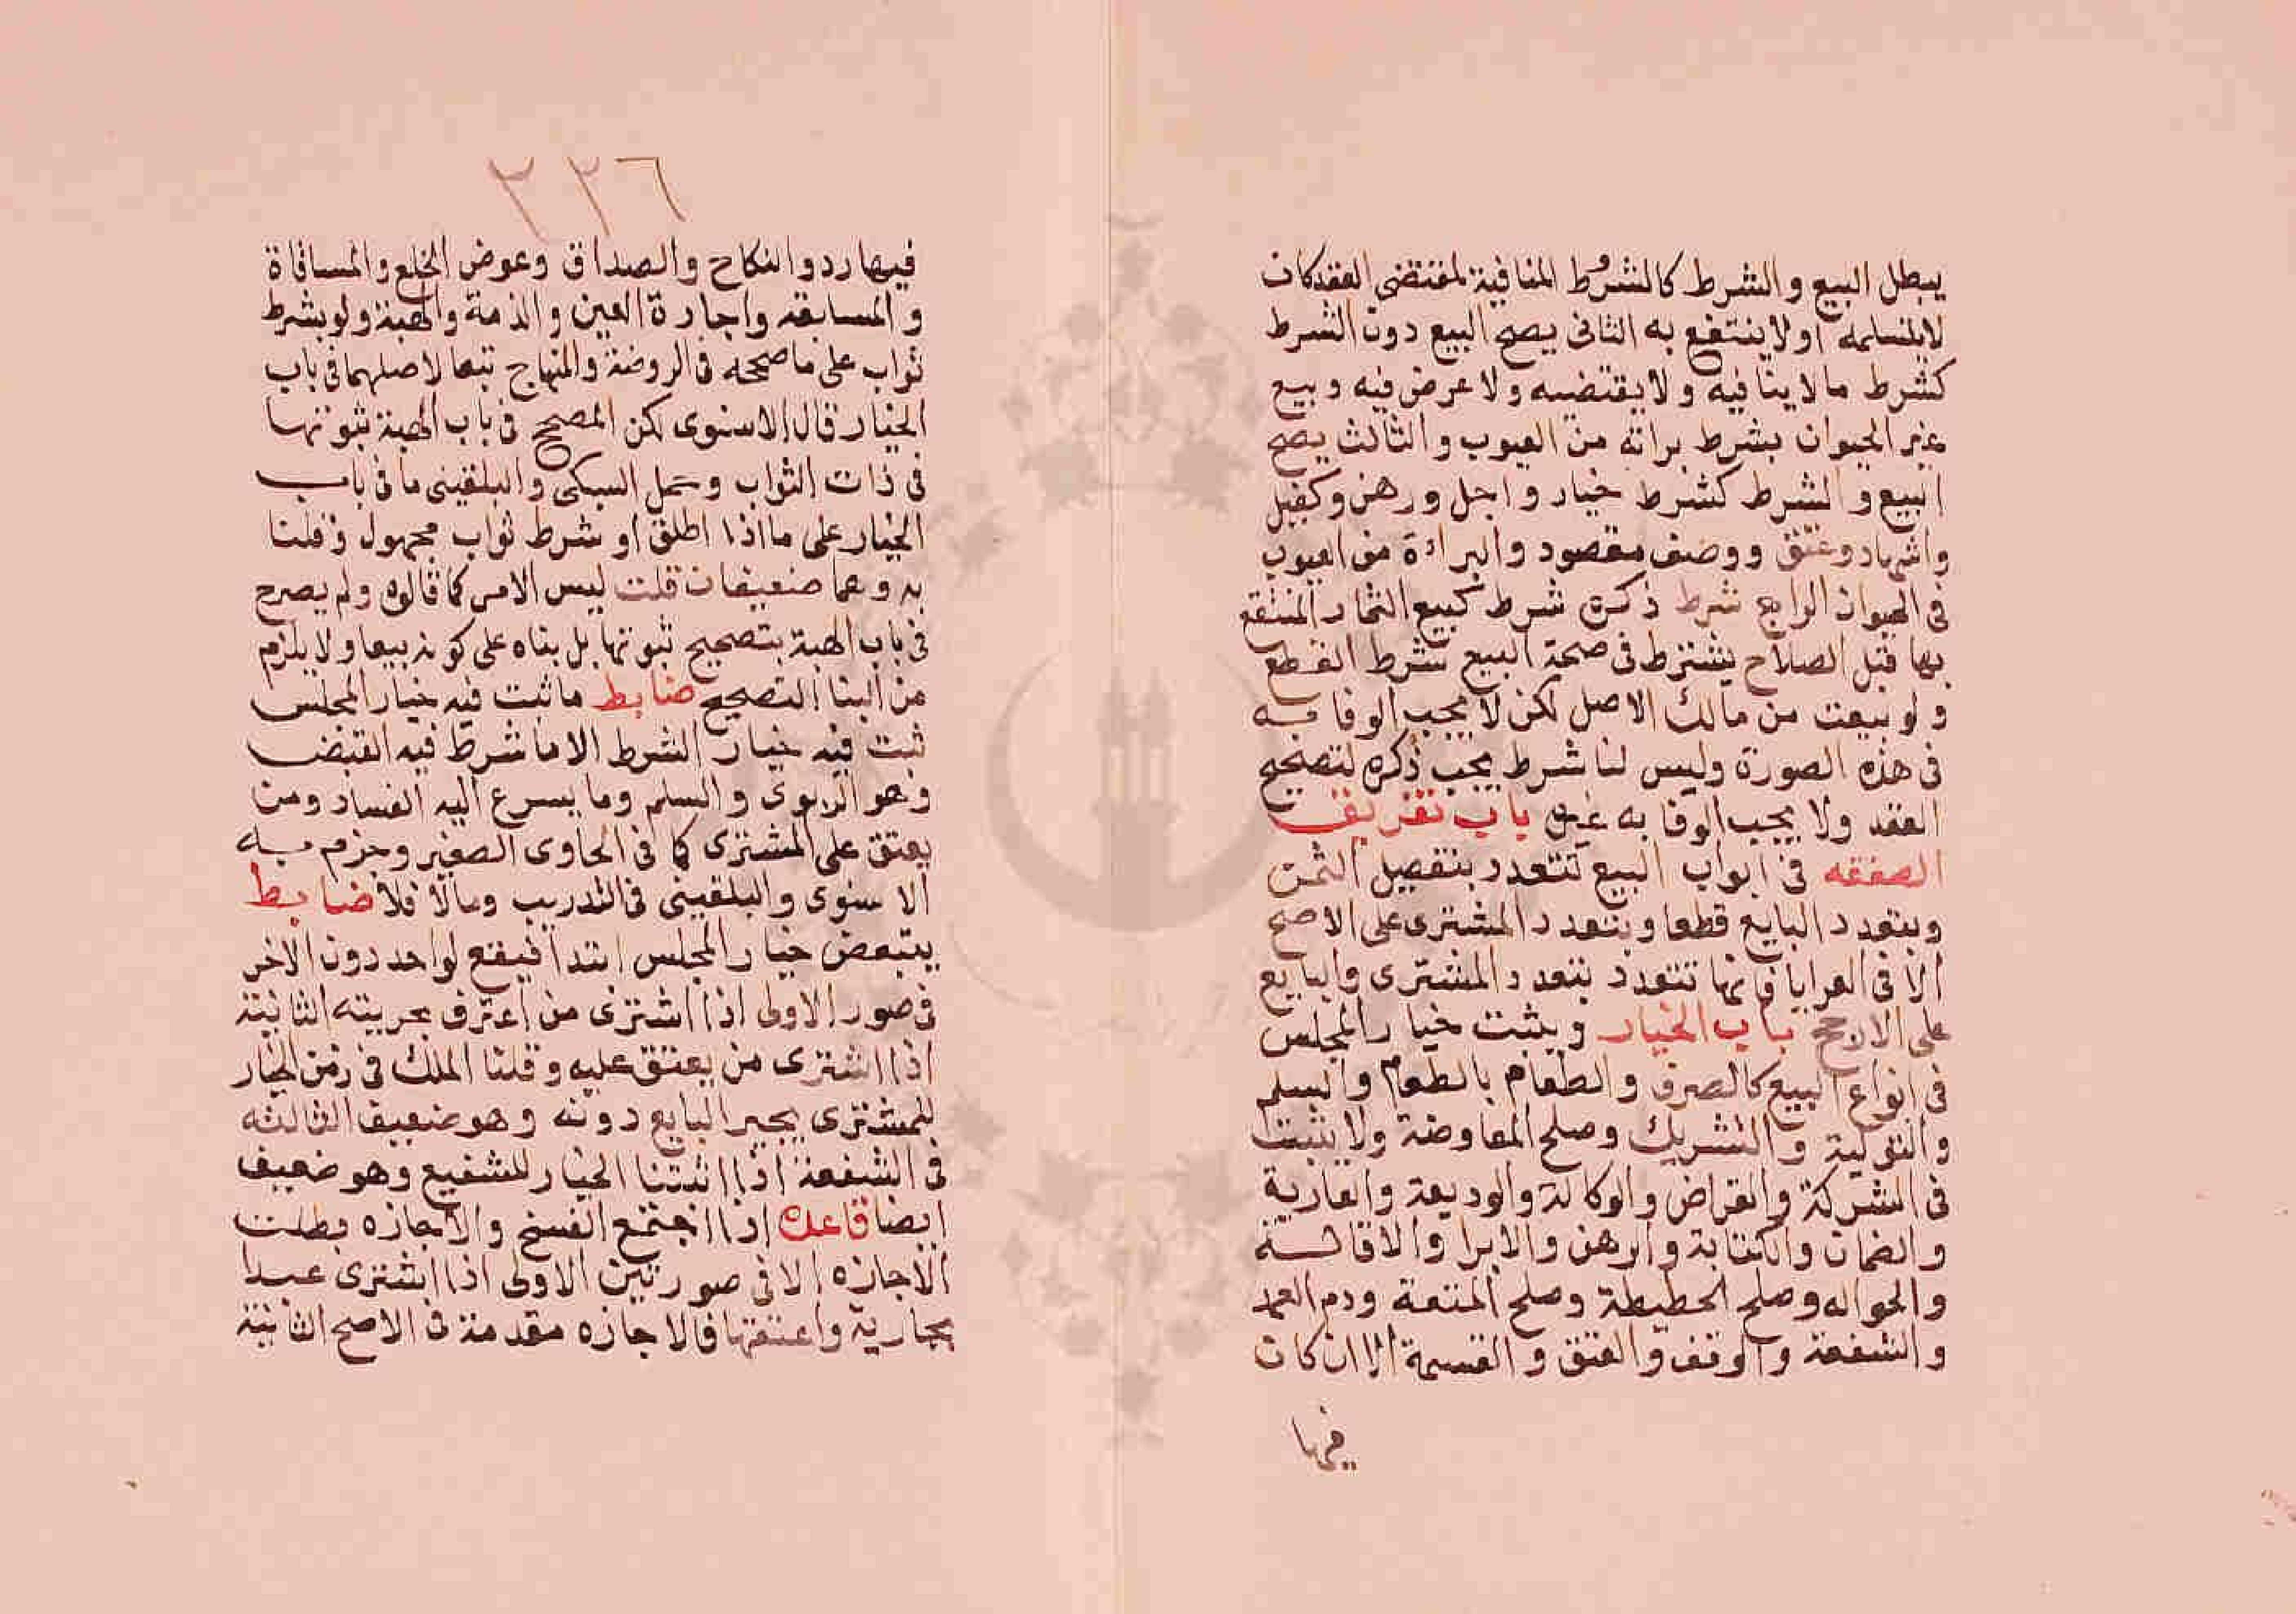 يبطل البيع والشرط كالشروط المنافية لمقتضى العقد كان
لايسلمه او لا ينتفع به الثانى يصح البيع دون الشرط
كشرط ما لا ينافيه ولا يقتضيه ولا غرض فيه وبيع
غير الحيوان بشرط براته من العيوب والثالث يصح
البيع والشرط كشرط خيار واجل ورهن وكفيل
واشهاد وعتق ووصف مقصود والبراءة من العيوب
فى الحيوان الرابع شرط ذكره شرط كبيع الثمار المنتفع
بها قبل الصلاح يشترط فى صحة البيع شرط القطع
ولو بيعت من مالك الاصل لكن لا يجب الوفا به
فى هذه الصورة وليس لنا شرط يجب ذكره لتصحيح
العقد ولا يجب الوفا به غيره باب تفريق
الصفقه فى ابواب البيع تتعدد بتفصيل الثمن
وبتعدد البايع قطعا وبتعدد المشترى على الاصح
الا فى العرايا فانها تتعدد بتعدد المشترى والبايع
على الارجح باب الخيار ويثبت خيار المجلس
فى انواع البيع كالصرف والطعام بالطعام والسلم
والتولية والتشريك وصلح المعاوضة ولا يثبت
فى الشركة والقراض والوكالة والوديعة والعارية
والضمان والكتابة والرهن والابرا والاقالة
والحواله وصلح الحطيطة وصلح المنتعة ودم العمد
والشفعة والوقف والعتق والقسمة الا ان كان
فيها
٢٢٦
فيها رد والنكاح والصداق وعوض الخلع والمساقاة
والمسابقة واجارة العين والذمة والهبة ولو بشرط
ثواب على ما صححه فى الروضة والمنهاج تبعا لاصلهما فى باب
الخيار قال الاسنوى لكن المصحح فى باب الهبة ثبوتها
فى ذات الثواب وحمل السبكى والبلقينى ما فى باب
الخيار على ما اذا اطلق او شرط ثواب مجهول وقلنا
به وهما ضعيفان قلت ليس الامر كما قالوه ولم يصرح
فى باب الهبة بتصحيح ثبوتها بل بناه على كونه بيعا ولا يلزم
من البنا التصحيح ضابط ما ثبت فيه خيار المجلس
ثبت فيه خيار الشرط الا ما شرط فيه القبض
وهو الربوى والسلم وما يسرع اليه الفساد ومن
يعتق على المشترى كما فى الحاوى الصغير وجزم به
الا سنوى والبلقينى فى التدريب ومالا فلا ضابط
يتبعض خيار المجلس ابتدا فيقع لواحد دون الاخر
فى صور الاولى اذا اشترى من اعترف بحريته الثانية
اذا اشترى من يعتق عليه وقلنا الملك فى زمن الخيار
للمشترى يخير البايع دونه وهو ضعيف الثالثه
فى الشفعة اذا اثبتنا الخيار للشفيع وهو ضعيف
ايضا قاعدة اذا اجتمع الفسخ والاجازه بطلت
الاجازه الا فى صورتين الاولى اذا اشترى عبدا
بجارية واعتقها فالاجازه مقدمة فى الاصح الثانية